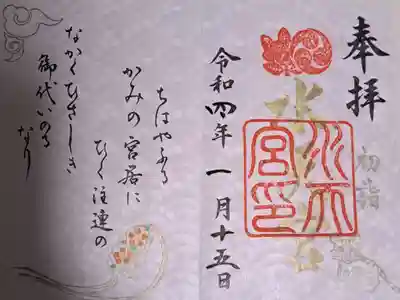 奉拝
初詣
水天宮
水天
宮印
令和四年 一月十五日
ちはやふる
かみの宮居に
ひく注連の
なかくひさしき
御代いのる
なり